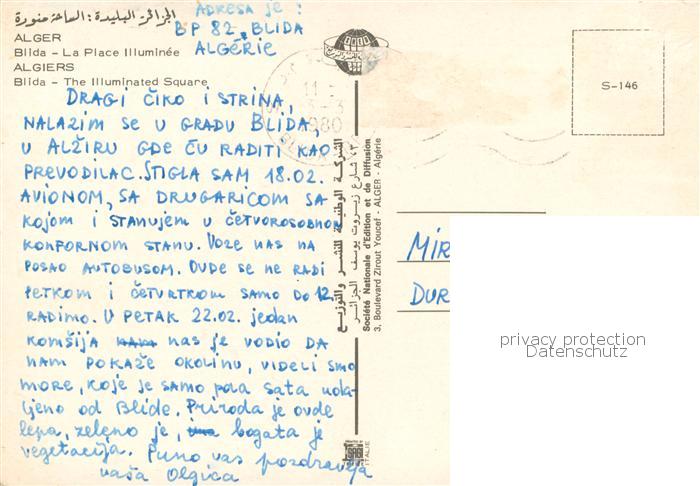 الجزائر البليدة: الساحة منورة
ALGER
Blida - La Place Illuminée
ALGIERS
Blida - The Illuminated Square
ADRESA JE :
BP 82, BLIDA
ALGÉRIE
DRAGI ČIKO I STRINA,
NALAZIM SE U GRADU BLIDA,
U ALŽIRU GDE ĆU RADITI KAO
PREVODILAC. STIGLA SAM 18.02.
AVIONOM, SA DRUGARICOM SA
KOJOM I STANUJEM U ČETVOROSOBNOM
KONFORNOM STANU. VOZE NAS NA
POSAO AUTOBUSOM. OVDE SE NE RADI
PETKOM I ČETVRTKOM SAMO DO 12
RADIMO. U PETAK 22.02. jedan
KOMŠIJA nam nas je VODIO DA
NAM POKAŽE OKOLINU, VIDELI SMO
MORE, KOJE JE SAMO pola sata uda-
ljeno od Blide. Priroda je ovde
lepa, zeleno je, ima bogata je
vegetacija. Puno vas pozdravlja
vaša Olgica
الشركة الوطنية للنشر والتوزيع
٣، شارع زيروت يوسف الجزائر
Société Nationale d'Edition et de Diffusion
3, Boulevard Zirout Youcef - ALGER - Algérie
SNED
ITALIE
11
3-3
1980
S-146
MIR
DUR
privacy protection
Datenschutz